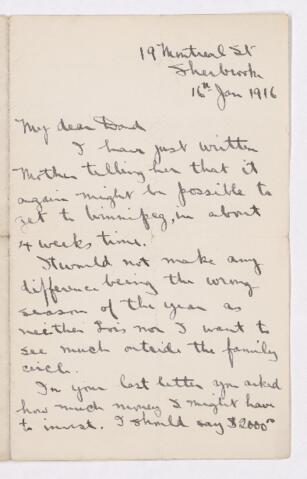 19 Montreal St
Sherbrook
16th Jan 1916
My dear Dad
I have just written
Mother telling her that it
again might be possible to
get to Winnipeg, in about
4 weeks time.
It would not make any
difference being the wrong
season of the year as
neither Lois nor I want to
see much outside the family
circle.
In your last letter you asked
how much money I might have
to invest. I should say $2000⁰⁰